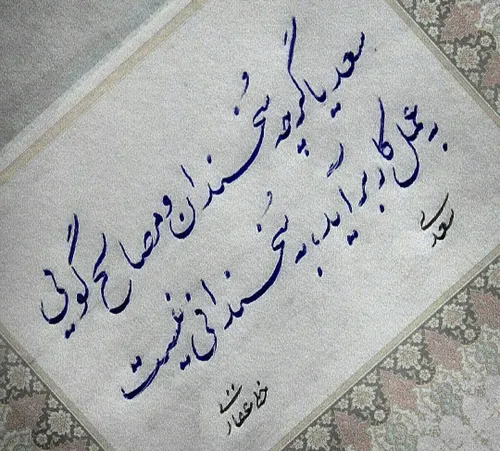 سعدیا گرچه سخندان و مصالح گویی
به عمل کار برآید، به سخندانی نیست
سعدی
خط عفار